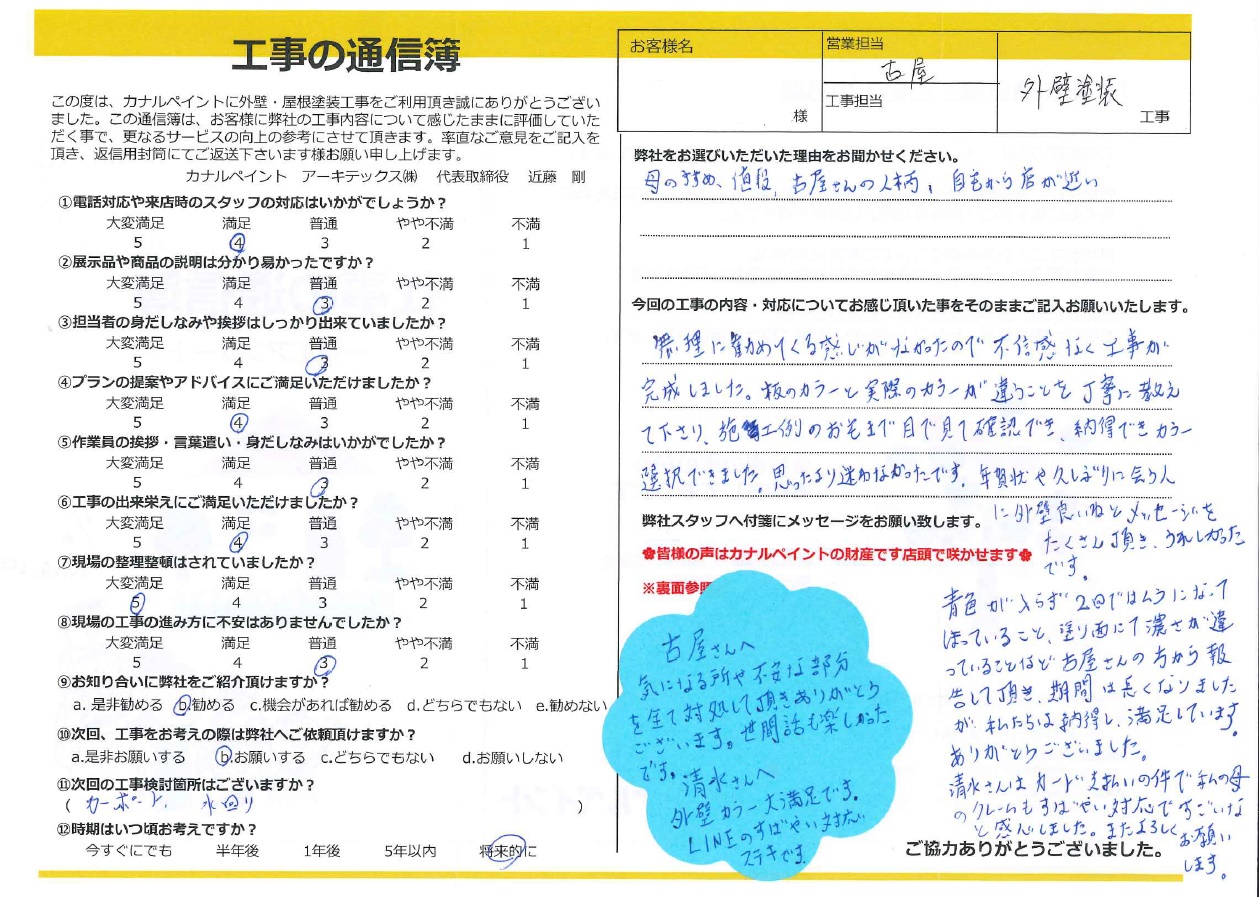 工事の通信簿
この度は、カナルペイントに外壁・屋根塗装工事をご利用頂き誠にありがとうござい
ました。この通信簿は、お客様に弊社の工事内容について感じたままに評価していた
だく事で、更なるサービスの向上の参考にさせて頂きます。率直なご意見をご記入を
頂き、返信用封筒にてご返送下さいます様お願い申し上げます。
カナルペイント アーキテックス㈱ 代表取締役 近藤 剛
①電話対応や来店時のスタッフの対応はいかがでしょうか？
大変満足 満足 普通 やや不満 不満
5 4 3 2 1
②展示品や商品の説明は分かり易かったですか？
大変満足 満足 普通 やや不満 不満
5 4 3 2 1
③担当者の身だしなみや挨拶はしっかり出来ていましたか？
大変満足 満足 普通 やや不満 不満
5 4 3 2 1
④プランの提案やアドバイスにご満足いただけましたか？
大変満足 満足 普通 やや不満 不満
5 4 3 2 1
⑤作業員の挨拶・言葉遣い・身だしなみはいかがでしたか？
大変満足 満足 普通 やや不満 不満
5 4 3 2 1
⑥工事の出来栄えにご満足いただけましたか？
大変満足 満足 普通 やや不満 不満
5 4 3 2 1
⑦現場の整理整頓はされていましたか？
大変満足 満足 普通 やや不満 不満
5 4 3 2 1
⑧現場の工事の進み方に不安はありませんでしたか？
大変満足 満足 普通 やや不満 不満
5 4 3 2 1
⑨お知り合いに弊社をご紹介頂けますか？
a. 是非勧める b.勧める c.機会があれば勧める d.どちらでもない e.勧めない
⑩次回、工事をお考えの際は弊社へご依頼頂けますか？
a.是非お願いする b.お願いする c.どちらでもない d.お願いしない
⑪次回の工事検討箇所はございますか？
( カーポート、水回り )
⑫時期はいつ頃お考えですか？
今すぐにでも 半年後 1年後 5年以内 将来的に
お客様名
様
営業担当
古屋
工事担当
外壁塗装
工事
弊社をお選びいただいた理由をお聞かせください。
母のすすめ、値段、古屋さんの人柄、自宅から店が近い
今回の工事の内容・対応についてお感じ頂いた事をそのままご記入お願いいたします。
無理に勧めてくる感じがなかったので不信感なく工事が
完成しました。板のカラーと実際のカラーが違うことを丁寧に教え
て下さり、施工例のお宅まで目で見て確認でき、納得できカラー
選択できました。思ったより迷わなかったです。年賀状や久しぶりに会う人
に外壁良いねとメッセージを
たくさん頂き、うれしかった
です。
弊社スタッフへ付箋にメッセージをお願い致します。
皆様の声はカナルペイントの財産です店頭で咲かせます
※裏面参照
古屋さんへ
気になる所や不安な部分
を全て対処して頂きありがとう
ございます。世間話も楽しかった
です。
清水さんへ
外壁カラー大満足です。
LINEのすばやい対応
ステキです。
青色が入らず2回ではムラになって
しまっていること、塗り面にて濃さが違
っていることなど古屋さんの方から報
告して頂き、期間は長くなりました
が、私たちは納得し、満足しています。
ありがとうございました。
清水さんはカード支払いの件で私の母
のクレームもすばやい対応ですごいな
と感心しました。またよろしく
お願い
します。
ご協力ありがとうございました。